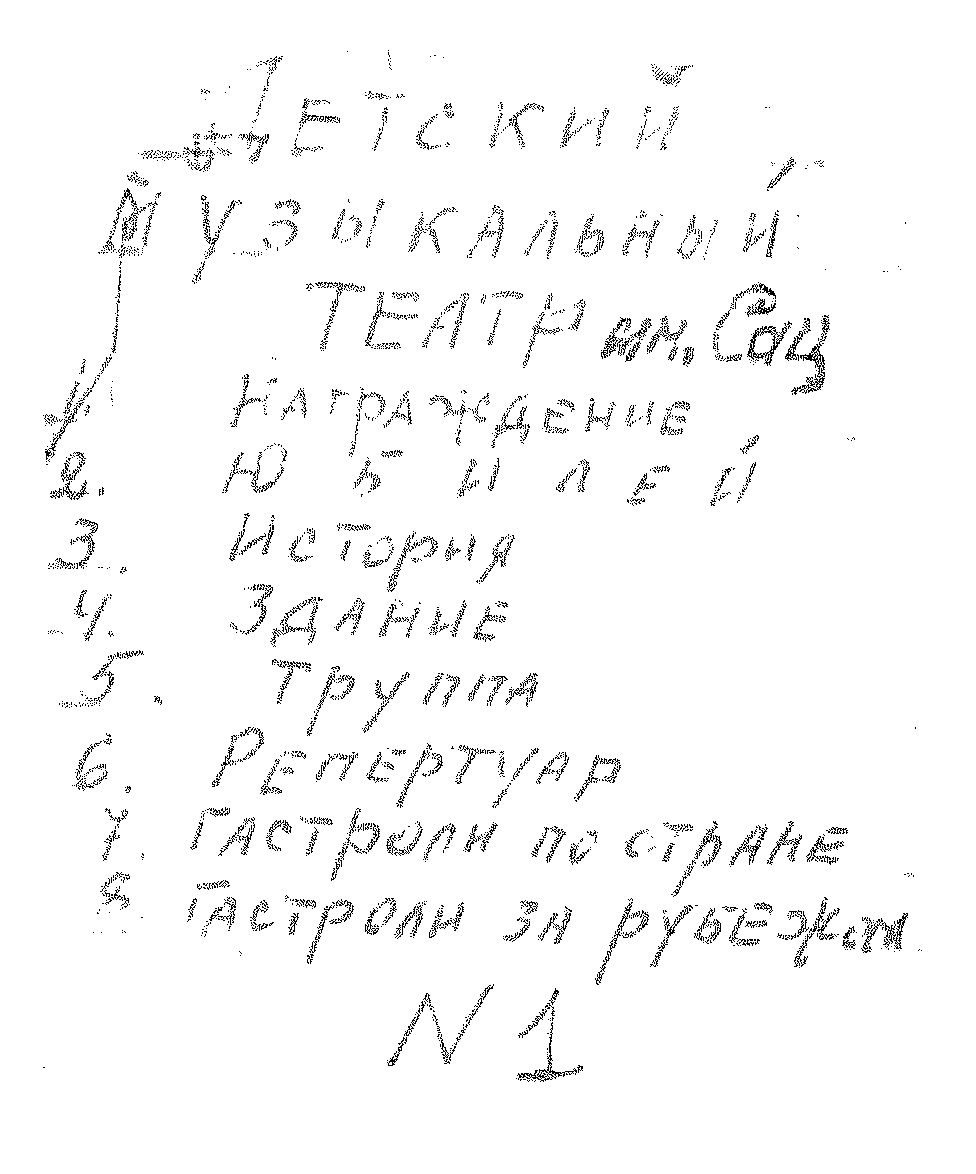 ДЕТСКИЙ
МУЗЫКАЛЬНЫЙ
ТЕАТР им. Сац
1. НАГРАЖДЕНИЕ
2. ЮБИЛЕЙ
3. ИСТОРИЯ
4. ЗДАНИЕ
5. ТРУППА
6. РЕПЕРТУАР
7. ГАСТРОЛИ ПО СТРАНЕ
8. ГАСТРОЛИ ЗА РУБЕЖОМ
N 1